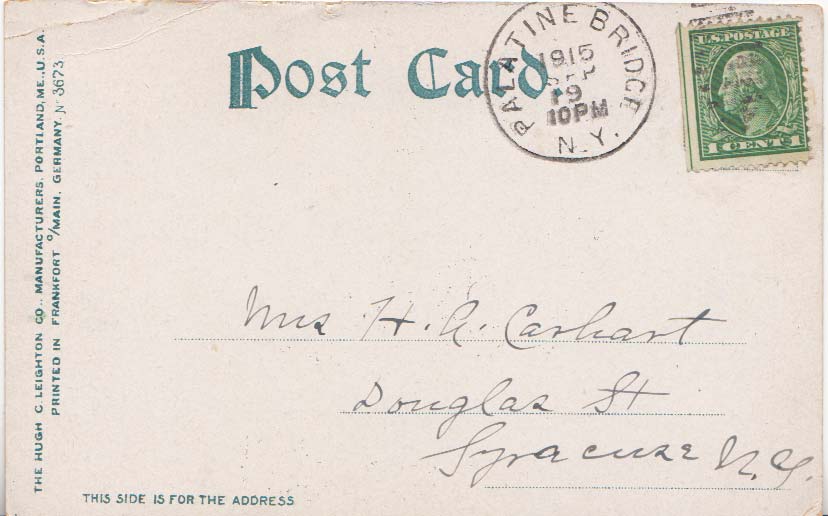 Post Card.
PALATINE BRIDGE
1915
SEP
19
10PM
N.Y.
U.S. POSTAGE
1 CENT 1
Mrs H. A. Carhart
Douglas St
Syracuse N.Y.
THIS SIDE IS FOR THE ADDRESS
THE HUGH C. LEIGHTON CO., MANUFACTURERS, PORTLAND, ME., U.S.A.
PRINTED IN FRANKFORT o/MAIN, GERMANY. No 3673